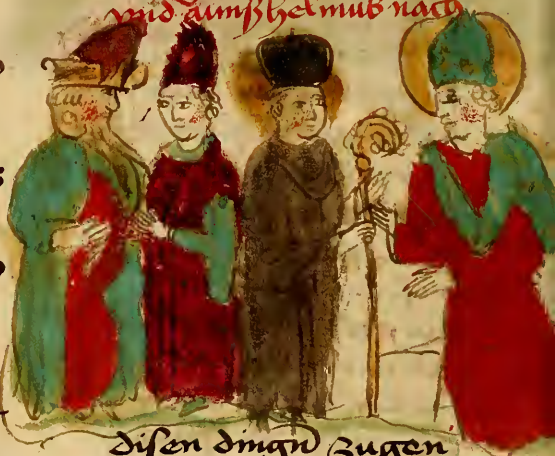 vnd aunßhelmuß nach
disen dingn zugen